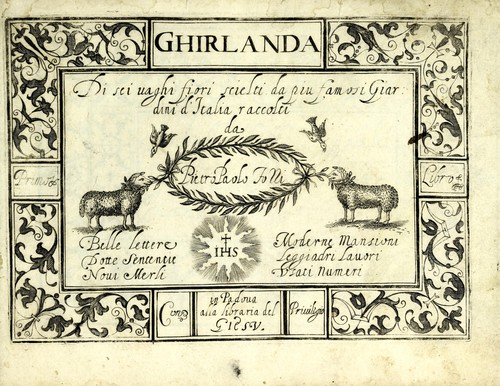 GHIRLANDA
Di sei uaghi fiori scielti da piu famosi Giar-
dini d'Italia raccolti
da
Pietro Paolo Tozzi
Primo
Libro
Belle lettere
Dotte Sententie
Noui Merli
IHS
Moderne Mansioni
Leggiadri Lauori
Vsati Numeri
Con
in Padoua
alla libraria del
GIESV.
Priuilegio